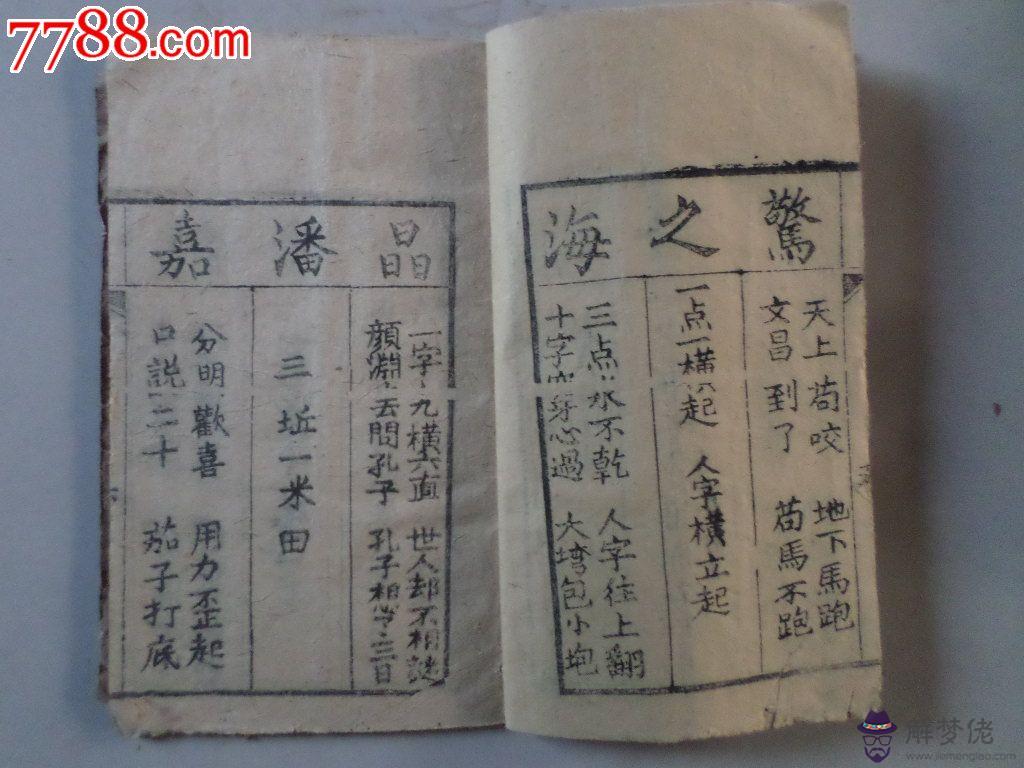 7788.com
驚
天上苟咬 地下馬跑
文昌到了 苟馬不跑
之
一点一横起 人字横立起
海
三点水不乾 人字往上翻
十字 身心過 大塆包小垉
晶
一字 九横六直 世人却不相
顔淵去問孔子 孔子想 三日
潘
三坵一米田
嘉
分明歡喜 用力歪起
口説二十 茄子打底
解梦佬
www.jiemenglao.com